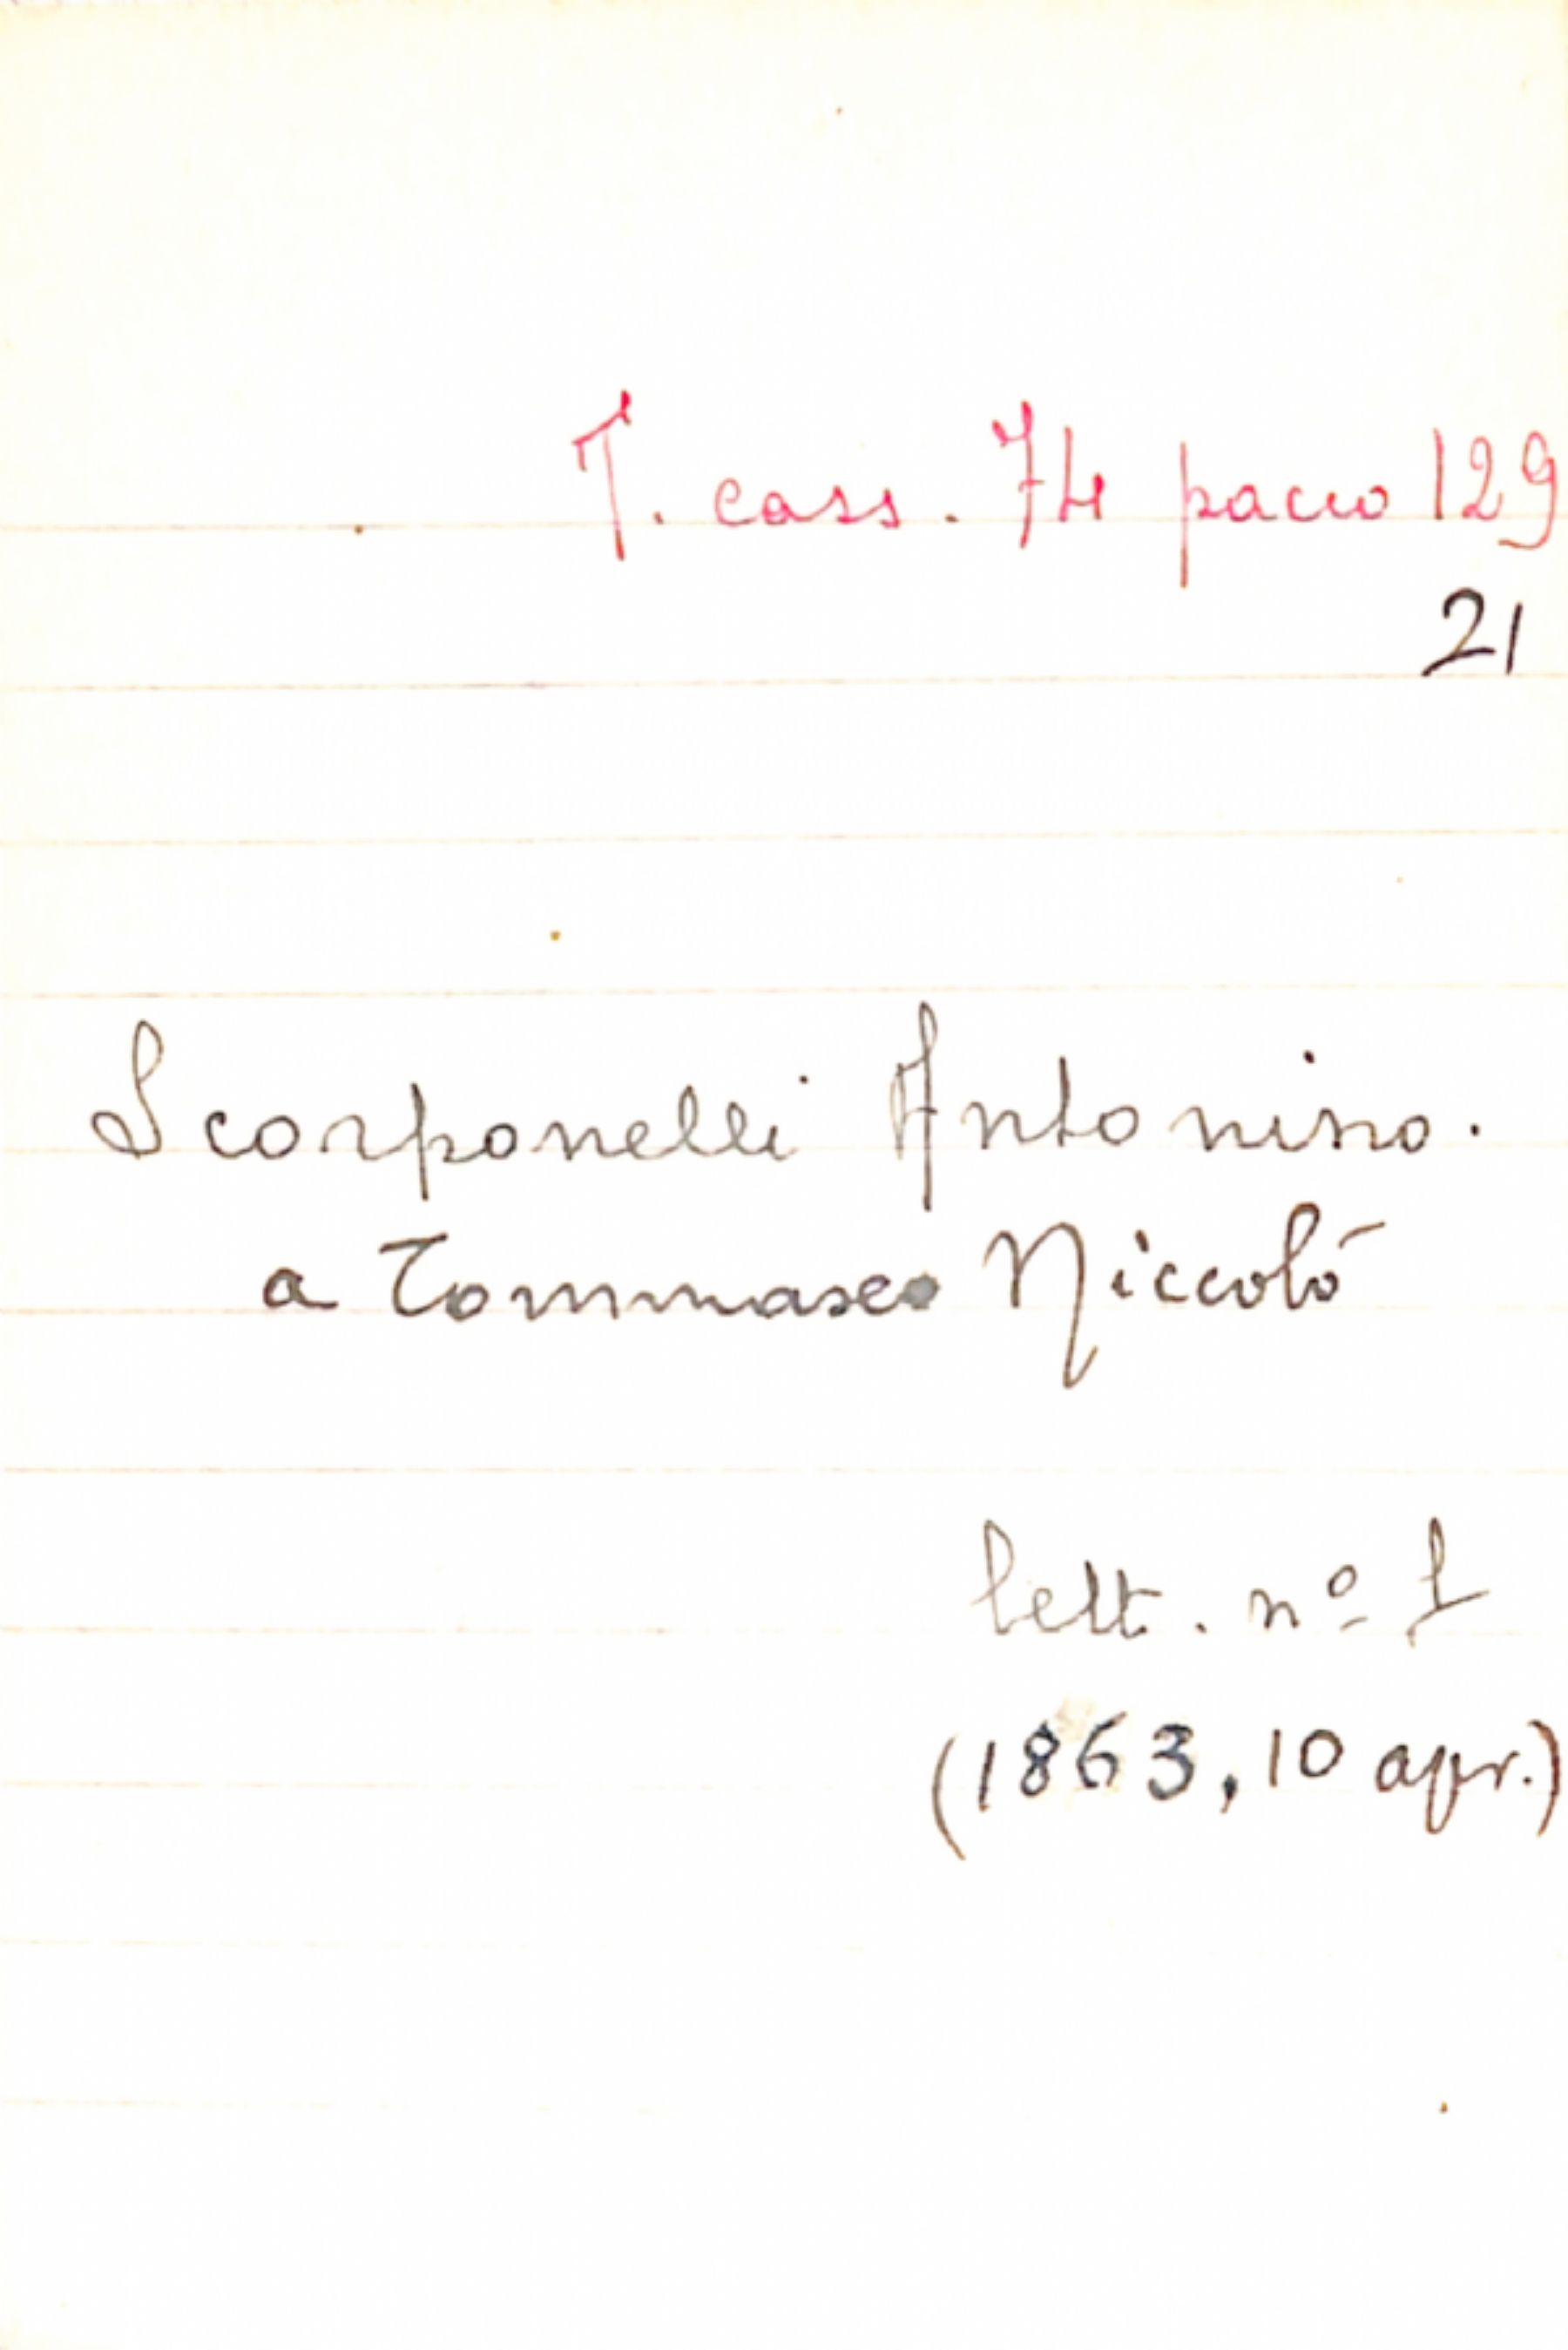 T. cass. 74 pacco 129
21
Scorponelli Antonino.
a Tommaseo Niccolò
lett. nº 1
(1863, 10 apr.)